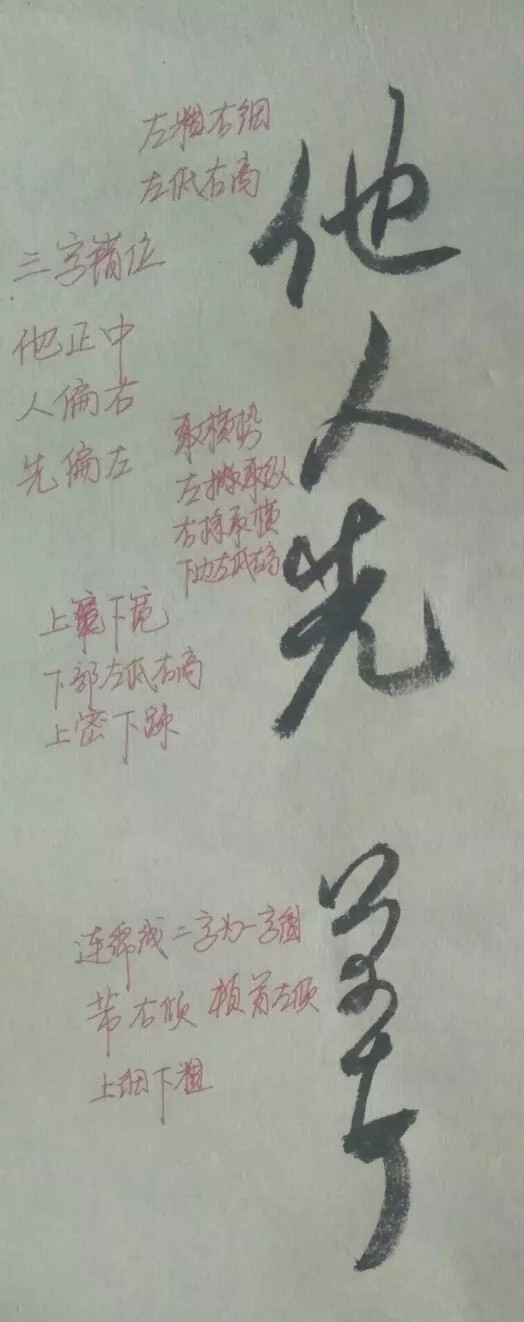 他人先
左粗右细
左低右高
三字错位
他正中
人偏右
先偏左
取横势
左撇取纵
右捺取横
下边左低右高
上窄下宽
下部左低右高
上密下疏
连绵成二字为一字图
右倾 左倾
上细下粗